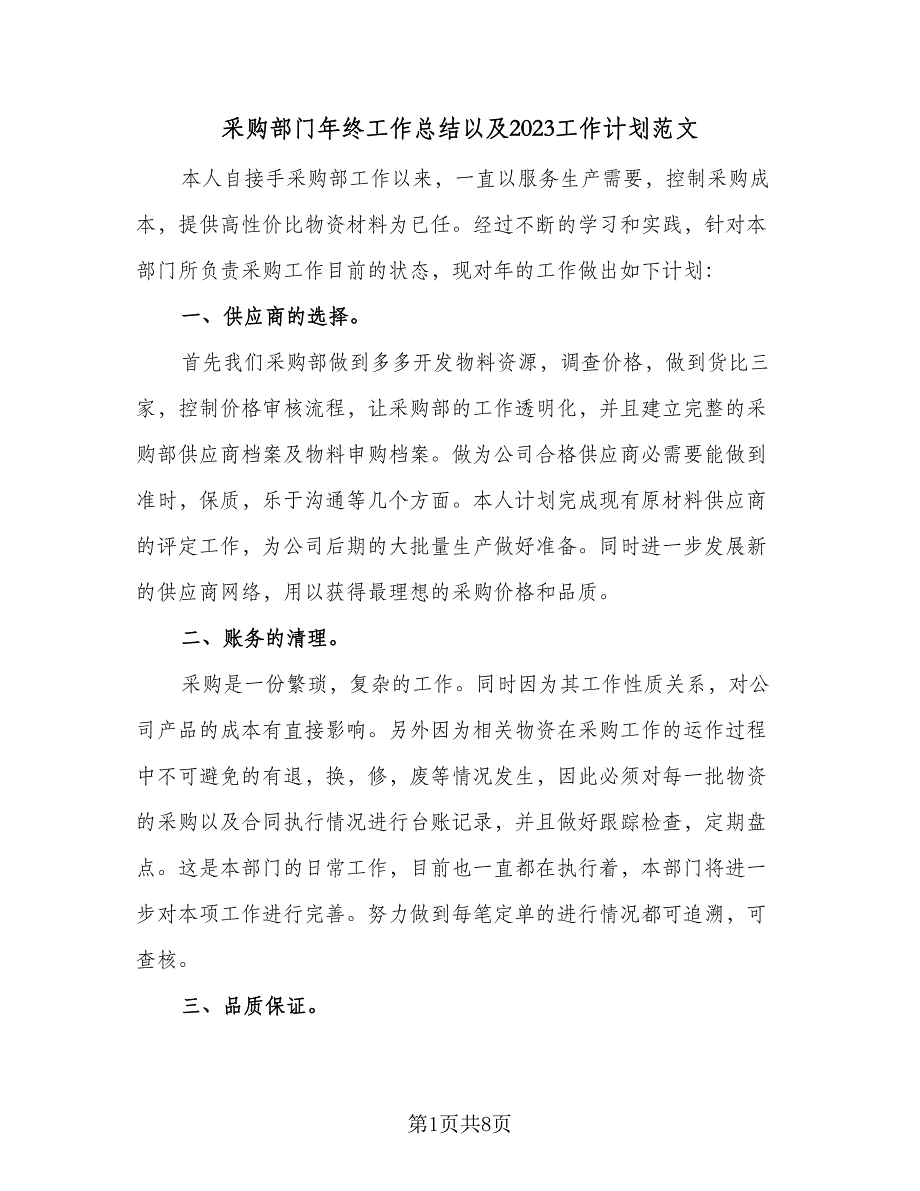 采购部门年终工作总结以及2023工作计划范文
本人自接手采购部工作以来，一直以服务生产需要，控制采购成
本，提供高性价比物资材料为已任。经过不断的学习和实践，针对本
部门所负责采购工作目前的状态，现对年的工作做出如下计划：
一、供应商的选择。
首先我们采购部做到多多开发物料资源，调查价格，做到货比三
家，控制价格审核流程，让采购部的工作透明化，并且建立完整的采
购部供应商档案及物料申购档案。做为公司合格供应商必需要能做到
准时，保质，乐于沟通等几个方面。本人计划完成现有原材料供应商
的评定工作，为公司后期的大批量生产做好准备。同时进一步发展新
的供应商网络，用以获得最理想的采购价格和品质。
二、账务的清理。
采购是一份繁琐，复杂的工作。同时因为其工作性质关系，对公
司产品的成本有直接影响。另外因为相关物资在采购工作的运作过程
中不可避免的有退，换，修，废等情况发生，因此必须对每一批物资
的采购以及合同执行情况进行台账记录，并且做好跟踪检查，定期盘
点。这是本部门的日常工作，目前也一直都在执行着，本部门将进一
步对本项工作进行完善。努力做到每笔定单的进行情况都可追溯，可
查核。
三、品质保证。
第1页共8页